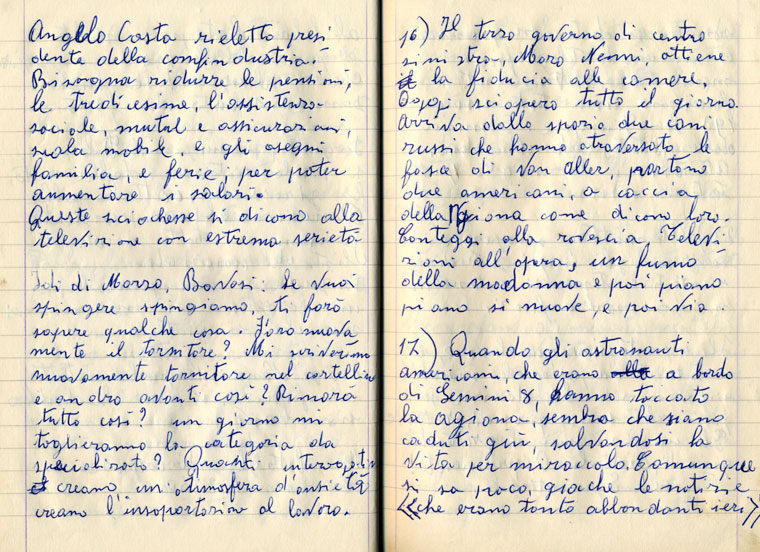 Angelo Costa rieletto presi
dente della confindustria.
Bisogna ridurre le pensioni,
le tredicesime, l'assistenza
sociale, mutul e assicurazioni,
scala mobile, e gli asegni
familia, e ferie, per poter
aumentare i salari.
Queste sciochesse si dicono alla
televisione con estrema serietà
Idi di Marzo, Bavosi: Se vuoi
spingere spingiamo, ti farò
sapere qualche cosa. Farò nuova
mente il tornitore? Mi scriveranno
nuovamente tornitore nel cartellino
e andrò avanti così? Rimarrà
tutto così? un giorno mi
toglieranno la categoria da
specializato? Questi interogativi
creano un atmosfera d'ansietà
creano l'insoportazion al lavoro.
16) Il terzo governo di centro
sinistra, Moro Nenni, ottiene
la fiducia alle camere.
Oggi sciopero tutto il giorno
Arriva dallo spazio due cani
russi che hanno atraversato le
fasce di Van Aller, partono
due americani, a caccia
della Agiona come dicono loro.
Conteggi alla rovescia Televi
zioni all'opera, un fumo
della madonna e poi piano
piano si muove, e poi via.
17) Quando gli astronauti
americani, che erano a bordo
di Gemini 8, hanno toccato
la agiona, sembra che siano
caduti giù, salvandosi la
vita per miraccolo. Comunque
si sa poco, giache le notizie
<<che erano tanto abbondanti ieri>>